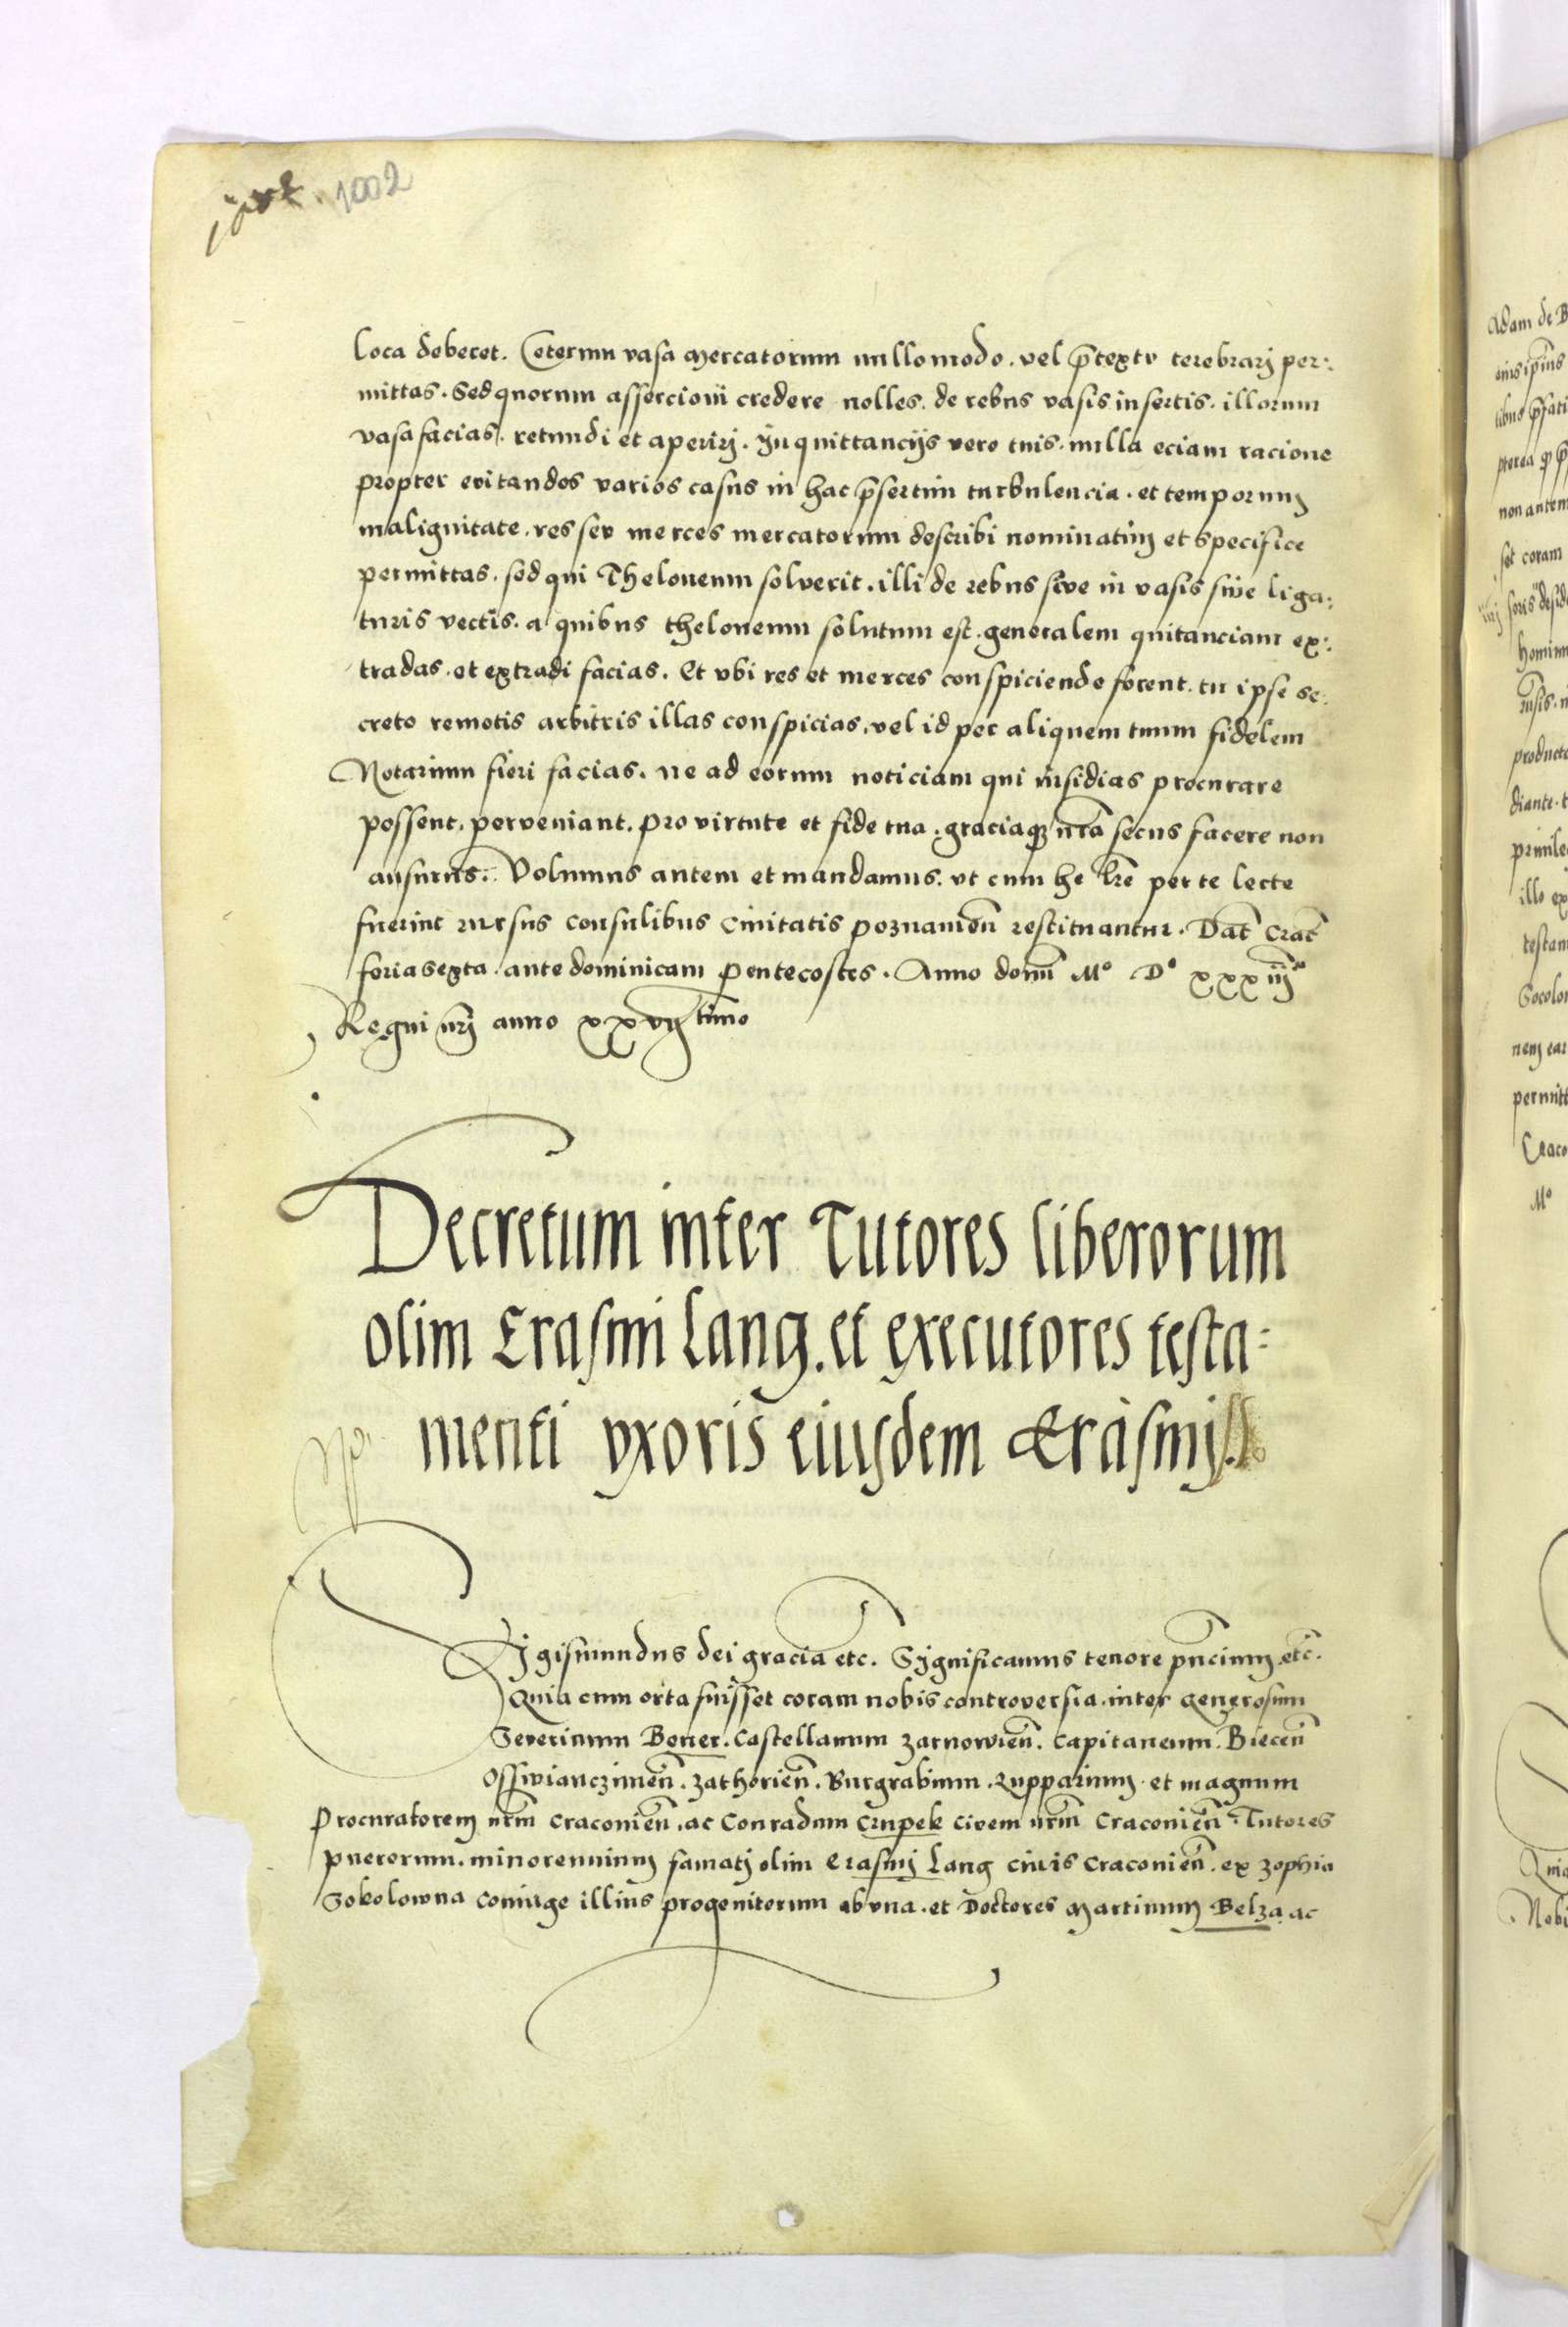 1002
loca deberet. Ceterum vasa mercatorum nullomodo. vel p̄textu terebrarj per:
mittas. Sed quorum assercioni credere nolles. de rebus vasis insertis. illorum
vasa facias. retundi et aperirj. In quittancijs vero tuis. nulla eciam racione
propter evitandos varios casus in hac p̄sertim turbulencia. et temporum
malignitate. res seu merces mercatorum describi nominatim et specifice
permittas. sed qui Theloneum solverit. illi de rebus sive in vasis sive liga:
turis vectis. a quibus theloneum solutum est. generalem quitanciam ex:
tradas. et extradi facias. Et vbi res et merces conspiciende forent. tu ipse se:
creto remotis arbitris illas conspicias. vel id per aliquem tuum fidelem
Notarium fieri facias. ne ad eorum noticiam qui insidias procurare
possent. perveniant. pro virtute et fide tua. graciaqꝫ nr̄a secus facere non
ausurus. Volumus autem et mandamus. vt cum he lr̄e per te lecte
fuerint rursus consulibus Civitatis poznanien̄ restituantur. Dat̄ Crac̄
feria sexta. ante dominicam Pentecostes. Anno domī Mº Dº xxxiijº
Regni nr̄j anno xxvijtimo
Decretum inter Tutores liberorum
olim Erasmi Lang. et executores testa=
menti vxoris eiusdem Erasmj
Sigismundus dei gracia etc. Significamus tenore pn̄cium. etc̄.
Quia cum orta fuisset coram nobis controversia. inter generosum
Severinum Boner. Castellanum zarnowien̄. Capitaneum. Biecen̄
Osswianczimen̄. zathorien̄. Burgrabium. zupparium. et magnum
Procuratorem nr̄m Cracovien̄. ac Conradum Crupek civem nr̄m Cracovien̄. Tutores
puerorum. minorennium famatj olim Erasmj Lang civis Cracovien̄. ex zophia
Sokolowna coniuge illius progenitorum ab vna. et Doctores Martinum Belza. ac